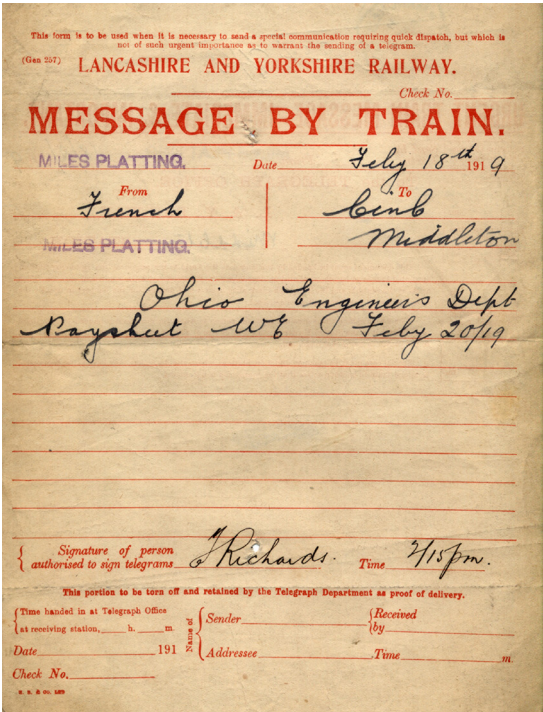 This form is to be used when it is necessary to send a special communication requiring quick dispatch, but which is
not of such urgent importance as to warrant the sending of a telegram.
(Gen 257)
LANCASHIRE AND YORKSHIRE RAILWAY.
Check No.
MESSAGE BY TRAIN.
MILES PLATTING.
Date Feby 18th 1919
From
To
French
Middleton
MILES PLATTING.
Ohio Engineers Dept
Paysheet WE Feby 20/19
Signature of person
authorised to sign telegrams
J Richards.
Time 2/15pm.
This portion to be torn off and retained by the Telegraph Department as proof of delivery.
Time handed in at Telegraph Office
at receiving station, h. m.
Date 191
Check No.
Name of
Sender
Addressee
Received
by
Time m